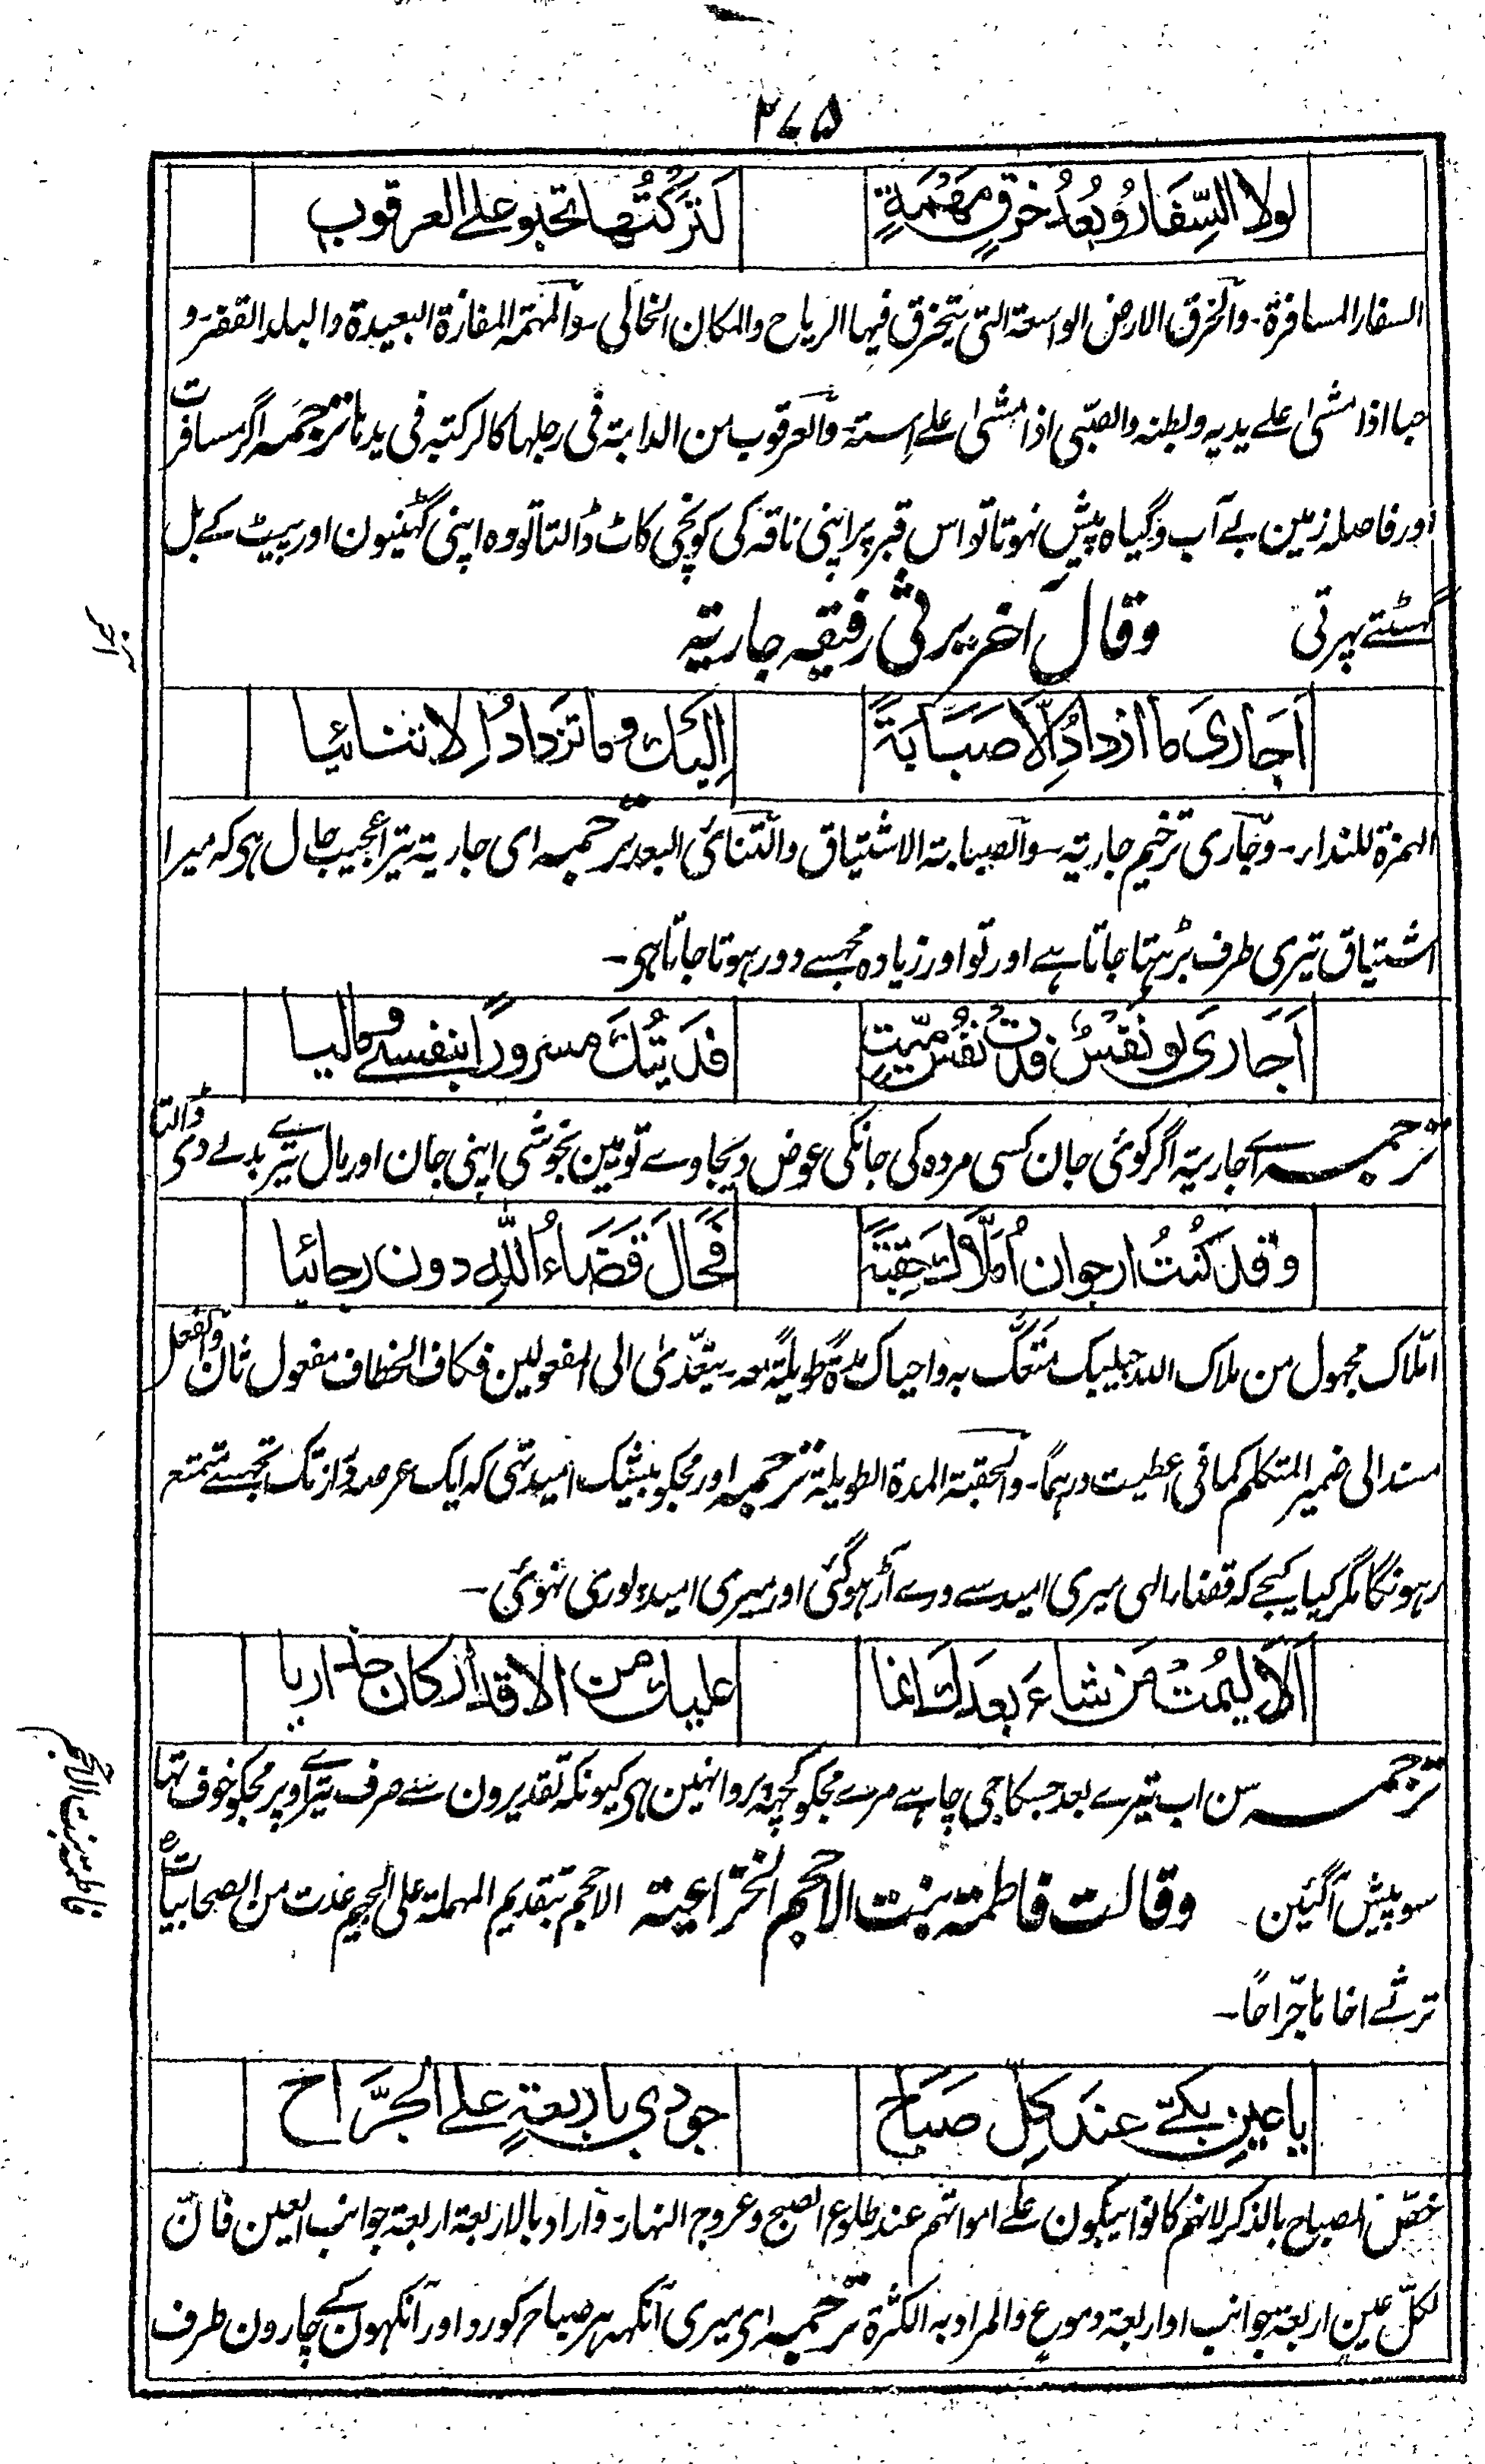 ٢٤٥
لولا السِّفَارُ وبُعْدُ خرقٍ مَهْمَةٍ لَتَرَكْتُها تحبو على العرقوب
السفار المسافرة۔ والخرق الارض الواسعة التي يتخرق فيها الرياح والمكان الخالي۔ والمهمه المفازة البعيدة والبلد القفر۔ و
حبا اذا مشىٰ على يديه وبطنه والصبّي اذا مشىٰ على إسته والعرقوب من الدابة في رجلها كالركبة في يدها ترجمہ اگر مسافرت
اور فاصلہ زمین بے آب وگیاہ پیش نہوتا تو اس قبر پر اپنی ناقہ کی کونچی کاٹ ڈالتا تو وہ اپنی گھٹنیون اور پیٹ کے بل
گھسٹتے پہرتی وقال آخر يرثي رفيقه جارية
اَجَارِيَ ما ازدادُ اِلّا صَبَابَةً اِلَيكَ وما تزدادُ اِلا تنائيا
الہمزة للنداء۔ وجاري ترخيم جارية۔ والصبابة الاشتياق والتنائي البعد ترجمہ ای جاریة تیرا عجیب حال ہی کہ میرا
اشتیاق تیری طرف بڑہتا جاتا ہے اور تو اور زیادہ مجہسے دور ہوتا جاتا ہی۔
اَجَارِيَ لو نَفْسٌ فَدَتْ نَفْسَ مَيّتٍ فَدَيتُكَ مسرورًا بنفسي وماليا
ترجمہ اے جاریة اگر کوئی جان کسی مردہ کی جانکی عوض دیجاوے تو مین بخوشی اپنی جان اور مال تیرے بدلے دی ڈالتا
وقد كنتُ ارجو ان اُمَلَّاكَ حِقبَةً فَحَالَ قَضَاءُ اللّٰهِ دون رجائيا
املّاك مجهول من ملّاك الله حبيبك متّعك به واحياك مدةً طويلةً معه۔ يتعدّىٰ الى المفعولين فكاف الخطاف مفعول ثان والفعل
مسند الى ضمير المتكلم كما في اعطيت درهمًا۔ والحقبة المدة الطويلة ترجمہ اور مجکو بیشک امید تہی کہ ایک عرصہ دراز تک تجہسے متمتع
رہونگا مگر کیا کیجے کہ قضاء الہی میری امید سے ورے آڑ ہوگئی اور میری امید پوری نہوئی۔
اَلَا لِيَمُتْ مَن شاءَ بعدَكَ انما عليكَ من الاقدار كان حذاريا
ترجمہ سن اب تیرے بعد جسکا جی چاہے مرے مجکو کچہہ پروا نہین ہی کیونکہ تقدیرون سے صرف تیرے اوپر مجکو خوف تہا
سو پیش آگئین وقالت فاطمة بنت الاحجم الخزاعية الاحجم بتقديم المهملة على الجيم عدت من الصحابيات
ترثي اخاها جّراحًا۔
يا عينِ بكّي عندَ كلّ صَبَاحٖ جودي باربعةٍ على الجَرَّاحٖ
خصّ الصباح بالذكر لانهم كانوا يبكون على امواتهم عند طلوع الصبح وعروج النهار۔ واراد بالاربعة اربعة جوانب العين فانّ
لكلّ عين اربعة جوانب او اربعة دموع والمراد به الكثرة ترجمہ ای میری آنکہہ ہر صباح کو رو اور آنکہون کے چارون طرف
فاطمة بنت الاحجم